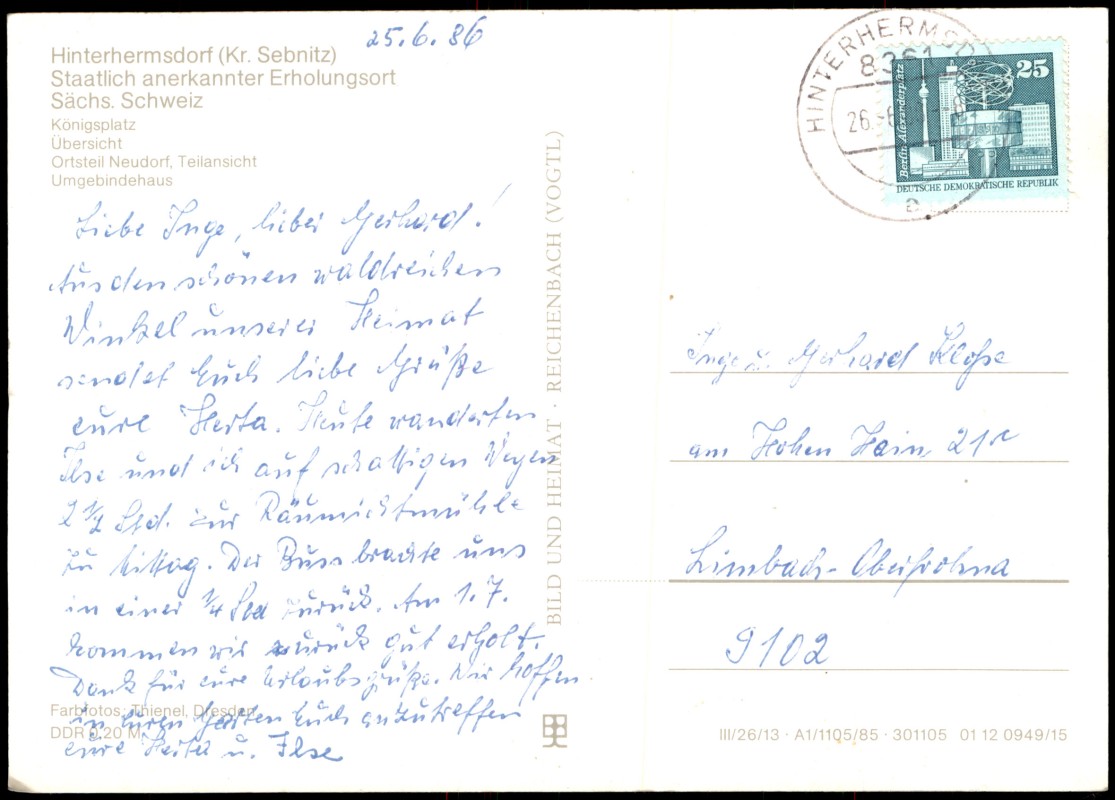 25.6.86
Hinterhermsdorf (Kr. Sebnitz)
Staatlich anerkannter Erholungsort
Sächs. Schweiz
Königsplatz
Übersicht
Ortsteil Neudorf, Teilansicht
Umgebindehaus
Liebe Inge, lieber Gerhard!
Aus den schönen waldreichen
Winkel unserer Heimat
sendet Euch liebe Grüße
eure Herta. Heute wanderten
Ilse und ich auf schattigen Wegen
2 1/2 Std. zur Räumichtmühle
zu Mittag. Der Buss brachte uns
in einer 1/4 Std zurück. Am 1.7.
kommen wir zurück gut erholt.
Dank für eure Urlaubsgrüße. Wir hoffen
in euren Garten Euch anzutreffen
eure Herta u. Ilse
Farbfotos: Thienel, Dresden
DDR 0,20 M
BILD UND HEIMAT · REICHENBACH (VOGTL)
HINTERHERMSD
8361
26.-6.
a
25
Berlin, Alexanderplatz
DEUTSCHE DEMOKRATISCHE REPUBLIK
Inge u. Gerhard Klose
am Hohen Hain 21c
Limbach-Oberfrohna
9102
III/26/13 · A1/1105/85 · 301105 01 12 0949/15